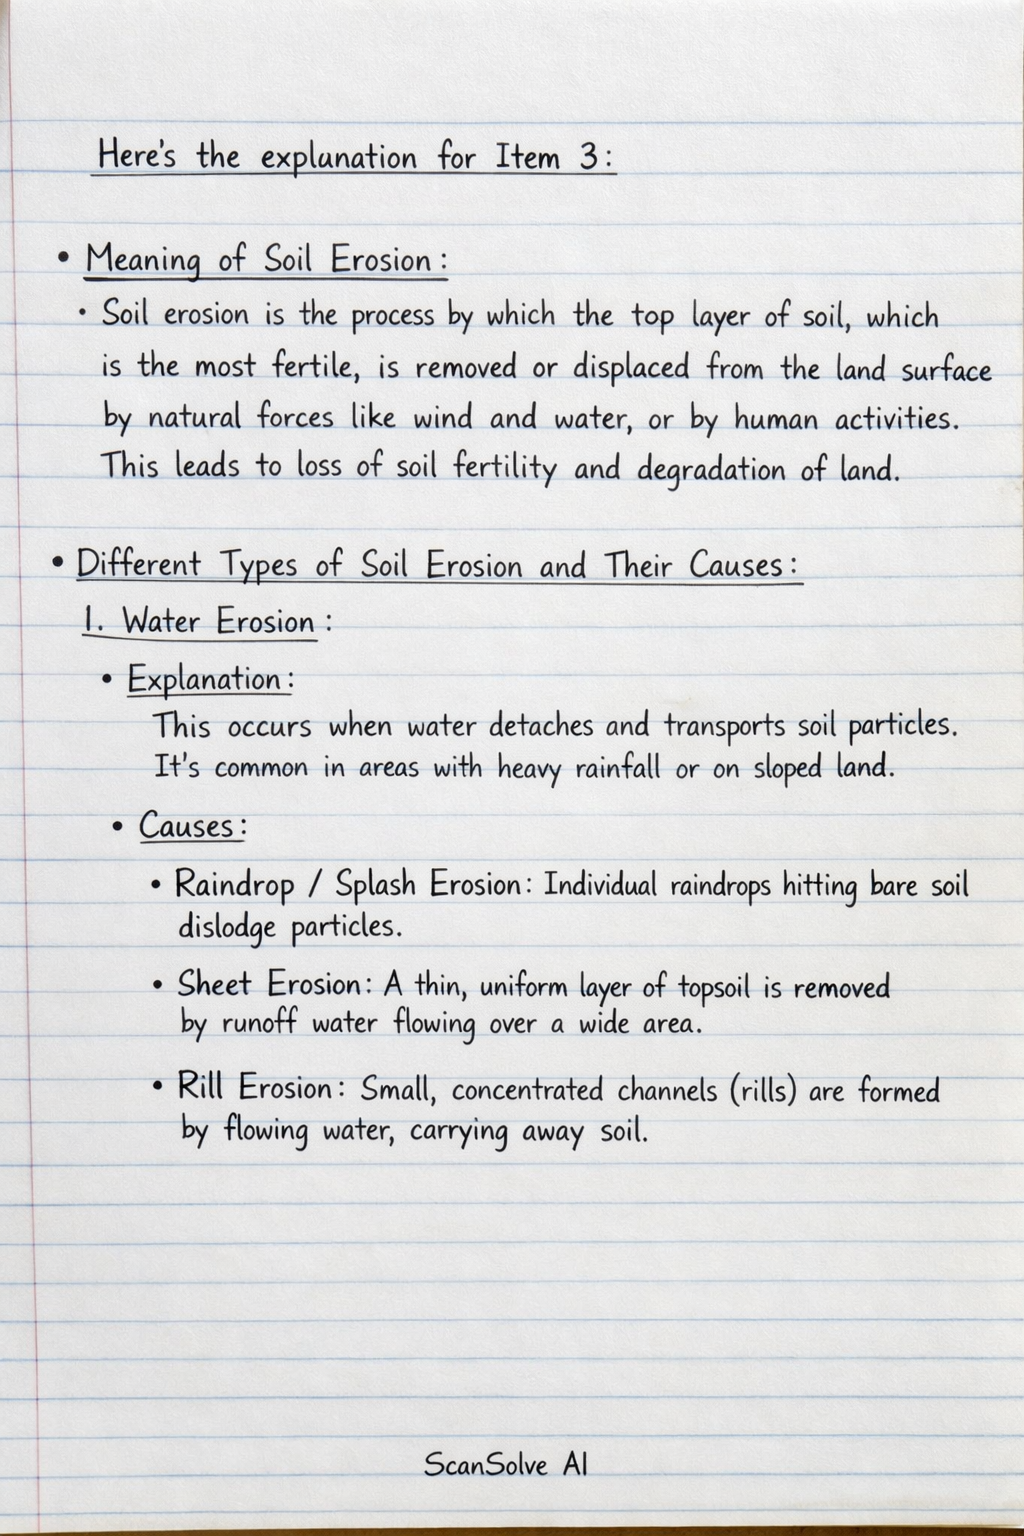 Here's the explanation for Item 3:
• Meaning of Soil Erosion:
• Soil erosion is the process by which the top layer of soil, which
is the most fertile, is removed or displaced from the land surface
by natural forces like wind and water, or by human activities.
This leads to loss of soil fertility and degradation of land.
• Different Types of Soil Erosion and Their Causes:
1. Water Erosion:
• Explanation:
This occurs when water detaches and transports soil particles.
It's common in areas with heavy rainfall or on sloped land.
• Causes:
• Raindrop / Splash Erosion: Individual raindrops hitting bare soil
dislodge particles.
• Sheet Erosion: A thin, uniform layer of topsoil is removed
by runoff water flowing over a wide area.
• Rill Erosion: Small, concentrated channels (rills) are formed
by flowing water, carrying away soil.
ScanSolve AI